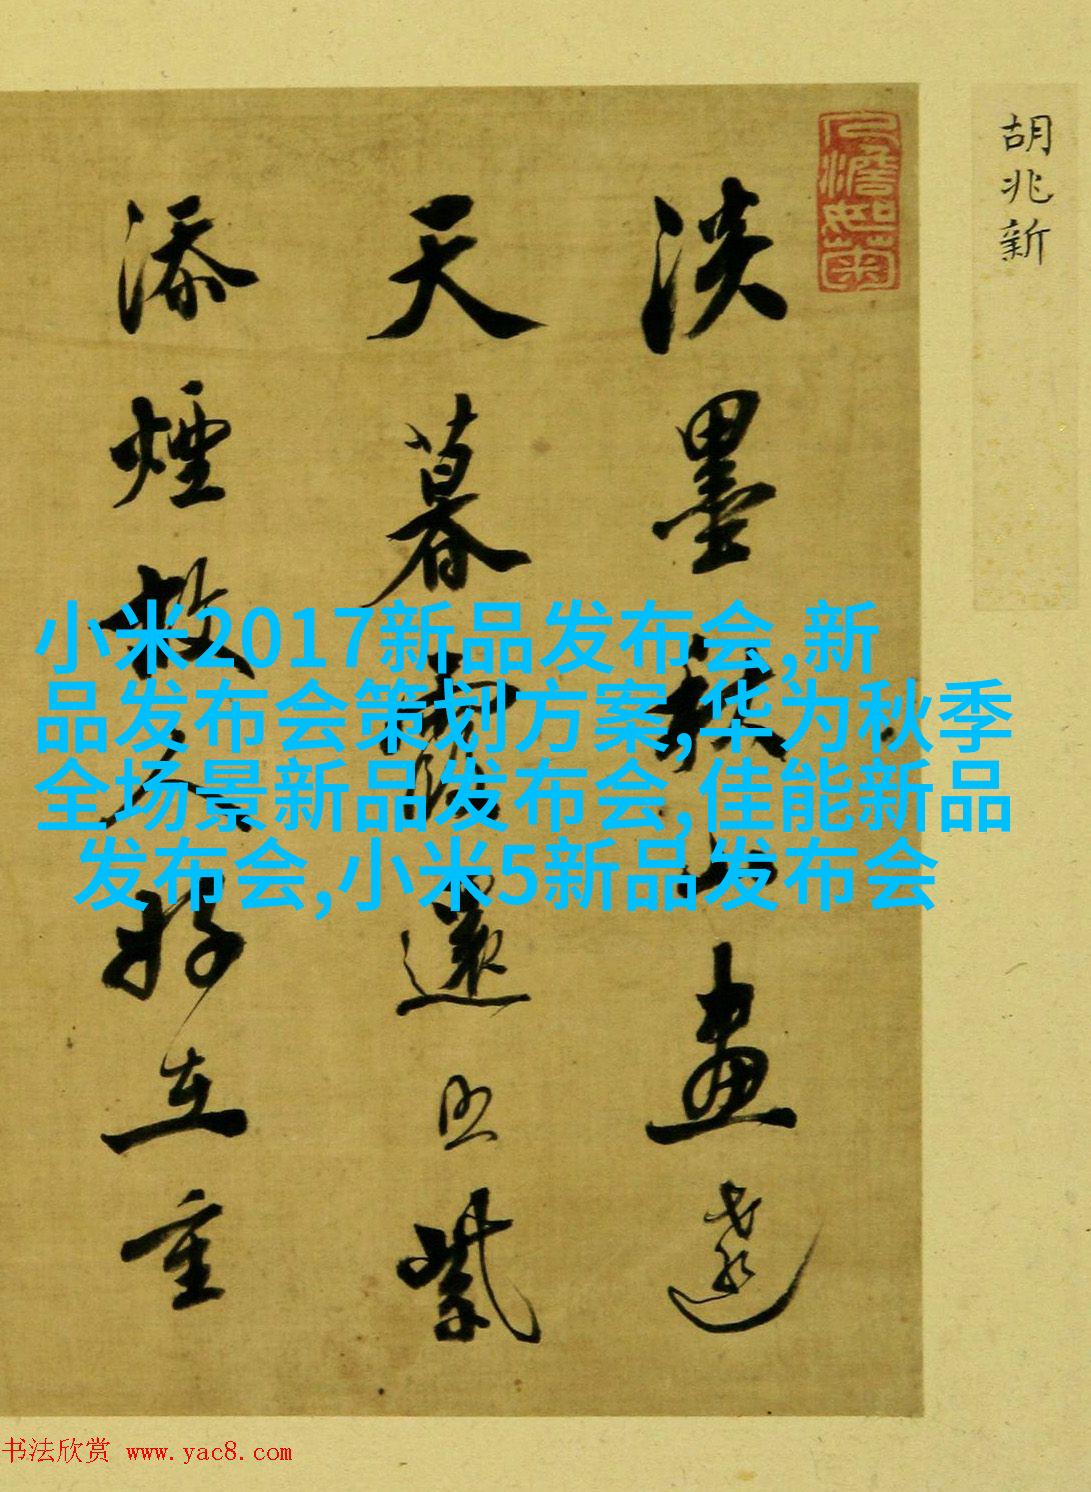 胡兆新
人澹如菊
淡墨秋山畫遠
天暮霞還照紫
添煙故人好在重
小米2017新品发布会,新
品发布会策划方案,华为秋季
全场景新品发布会,佳能新品
发布会,小米5新品发布会
书法欣赏 www.yac8.com